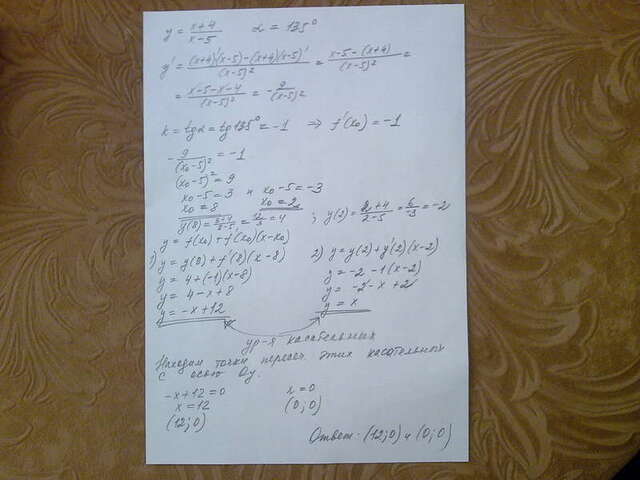 y = (x+4)/(x-5) α = 135°
y' = ((x+4)'(x-5) - (x+4)(x-5)')/(x-5)² = (x-5-(x+4))/(x-5)² =
= (x-5-x-4)/(x-5)² = -9/(x-5)²
k = tgα = tg135° = -1 ⇒ f'(x₀) = -1
-9/(x₀-5)² = -1
(x₀-5)² = 9
x₀-5 = 3 и x₀-5 = -3
x₀ = 8 x₀ = 2
y(8) = (8+4)/(8-5) = 12/3 = 4 ; y(2) = (2+4)/(2-5) = 6/-3 = -2
y = f(x₀) + f'(x₀)(x-x₀)
1) y = y(8) + f'(8)(x-8) 2) y = y(2) + y'(2)(x-2)
y = 4+(-1)(x-8) y = -2 -1(x-2)
y = 4-x+8 y = -2-x+2
y = -x+12 y = x
ур-я касательных
Находим точки пересеч. этих касательных
с осью Oy.
-x+12=0 x = 0
x = 12 (0;0)
(12;0)
Ответ: (12;0) и (0;0)